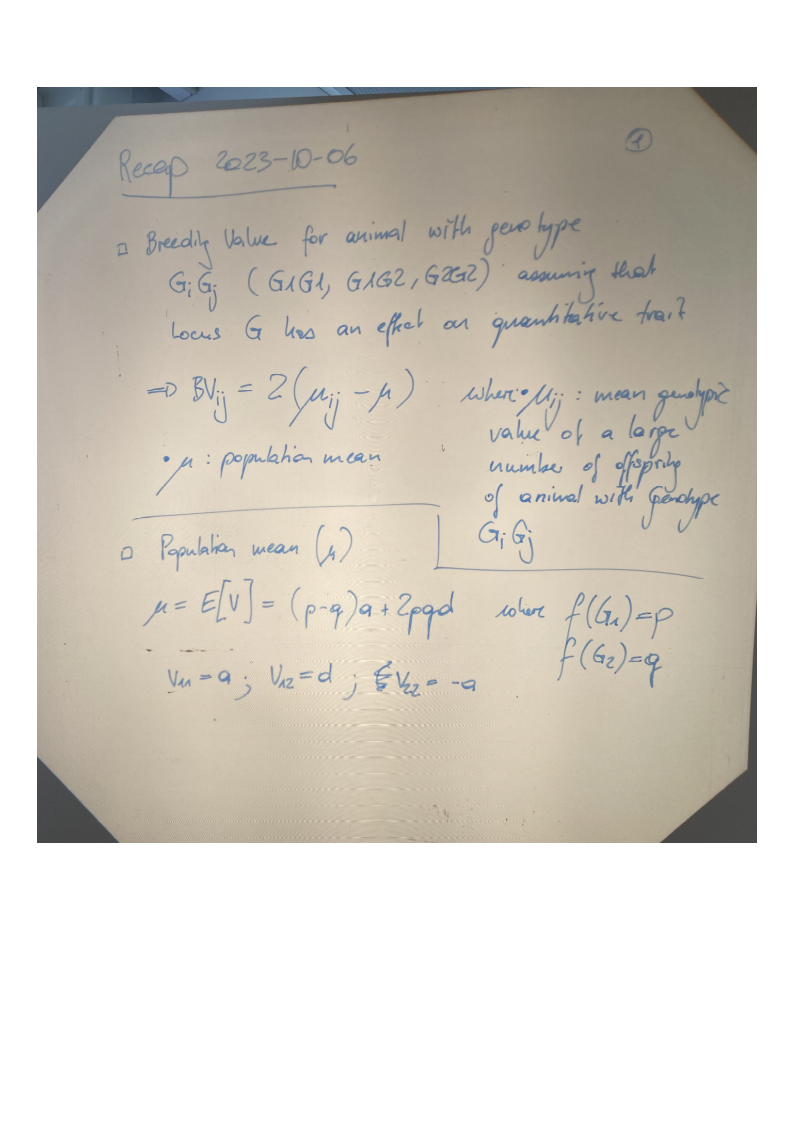 1
Recap 2023-10-06
□ Breeding Value for animal with genotype
GiGj (G1G1, G1G2, G2G2) assuming that
Locus G has an effect on quantitative trait
⇒ BVij = 2(μij - μ)
• μ : population mean
where • μij : mean genotypic
value of a large
number of offspring
of animal with Genotype
Gi Gj
□ Population mean (μ)
μ = E[V] = (p-q)a + 2pqd where f(G1)=p
f(G2)=q
V11 = a ; V12 = d ; V22 = -a